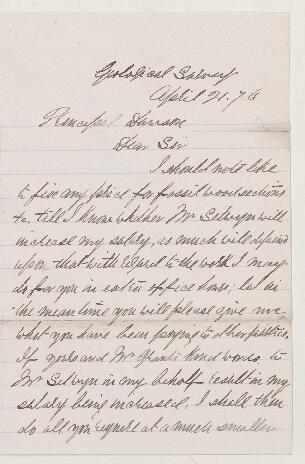 Geological Survey
April 21. 76
Principal Dawson
Dear Sir
I should not like
to fix any price for fossil wood sections
&c, till I know whether Mr Selwyn will
increase my salary, as much will depend
upon that with regard to the work I may
do for you in extra office hours; but in
the mean time you will please give me
what you have been paying to other parties.
If yours and Mr Grants kind words to
Mr Selwyn in my behalf result in my
salary being increased, I shall then
do all you require at a much smaller